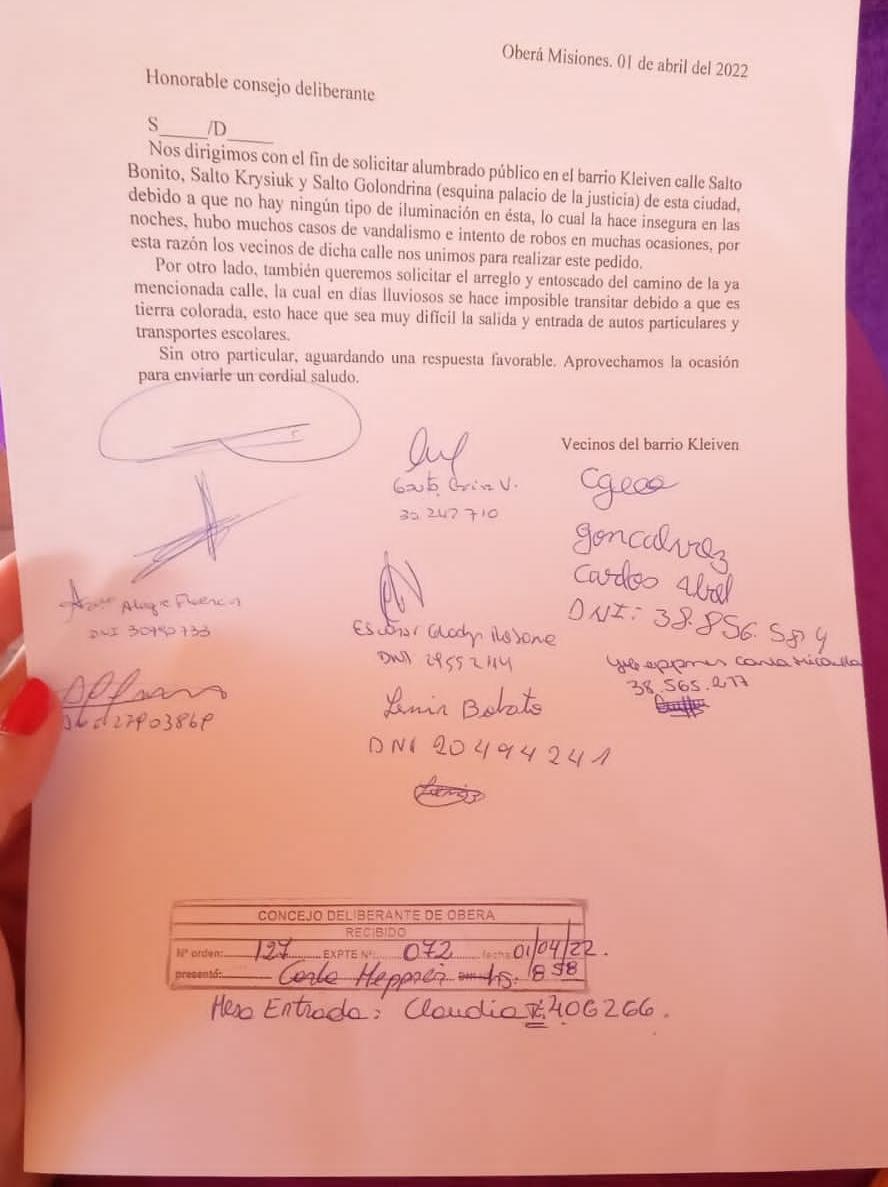 Oberá Misiones. 01 de abril del 2022
Honorable consejo deliberante
S_____/D_____
Nos dirigimos con el fin de solicitar alumbrado público en el barrio Kleiven calle Salto
Bonito, Salto Krysiuk y Salto Golondrina (esquina palacio de la justicia) de esta ciudad,
debido a que no hay ningún tipo de iluminación en ésta, lo cual la hace insegura en las
noches, hubo muchos casos de vandalismo e intento de robos en muchas ocasiones, por
esta razón los vecinos de dicha calle nos unimos para realizar este pedido.
Por otro lado, también queremos solicitar el arreglo y entoscado del camino de la ya
mencionada calle, la cual en días lluviosos se hace imposible transitar debido a que es
tierra colorada, esto hace que sea muy difícil la salida y entrada de autos particulares y
transportes escolares.
Sin otro particular, aguardando una respuesta favorable. Aprovechamos la ocasión
para enviarle un cordial saludo.
Vecinos del barrio Kleiven
goncalvez
Carlos Abel
DNI: 38.856.584
38.565.277
DNI
DNI
Lenir Bobato
DNI 20494241
CONCEJO DELIBERANTE DE OBERA
RECIBIDO
Nº orden: 127 EXPTE Nº: 072 fecha: 01/04/22.
presentó: Carla Heppner hs: 858
Mesa Entrada: Claudia 406266.